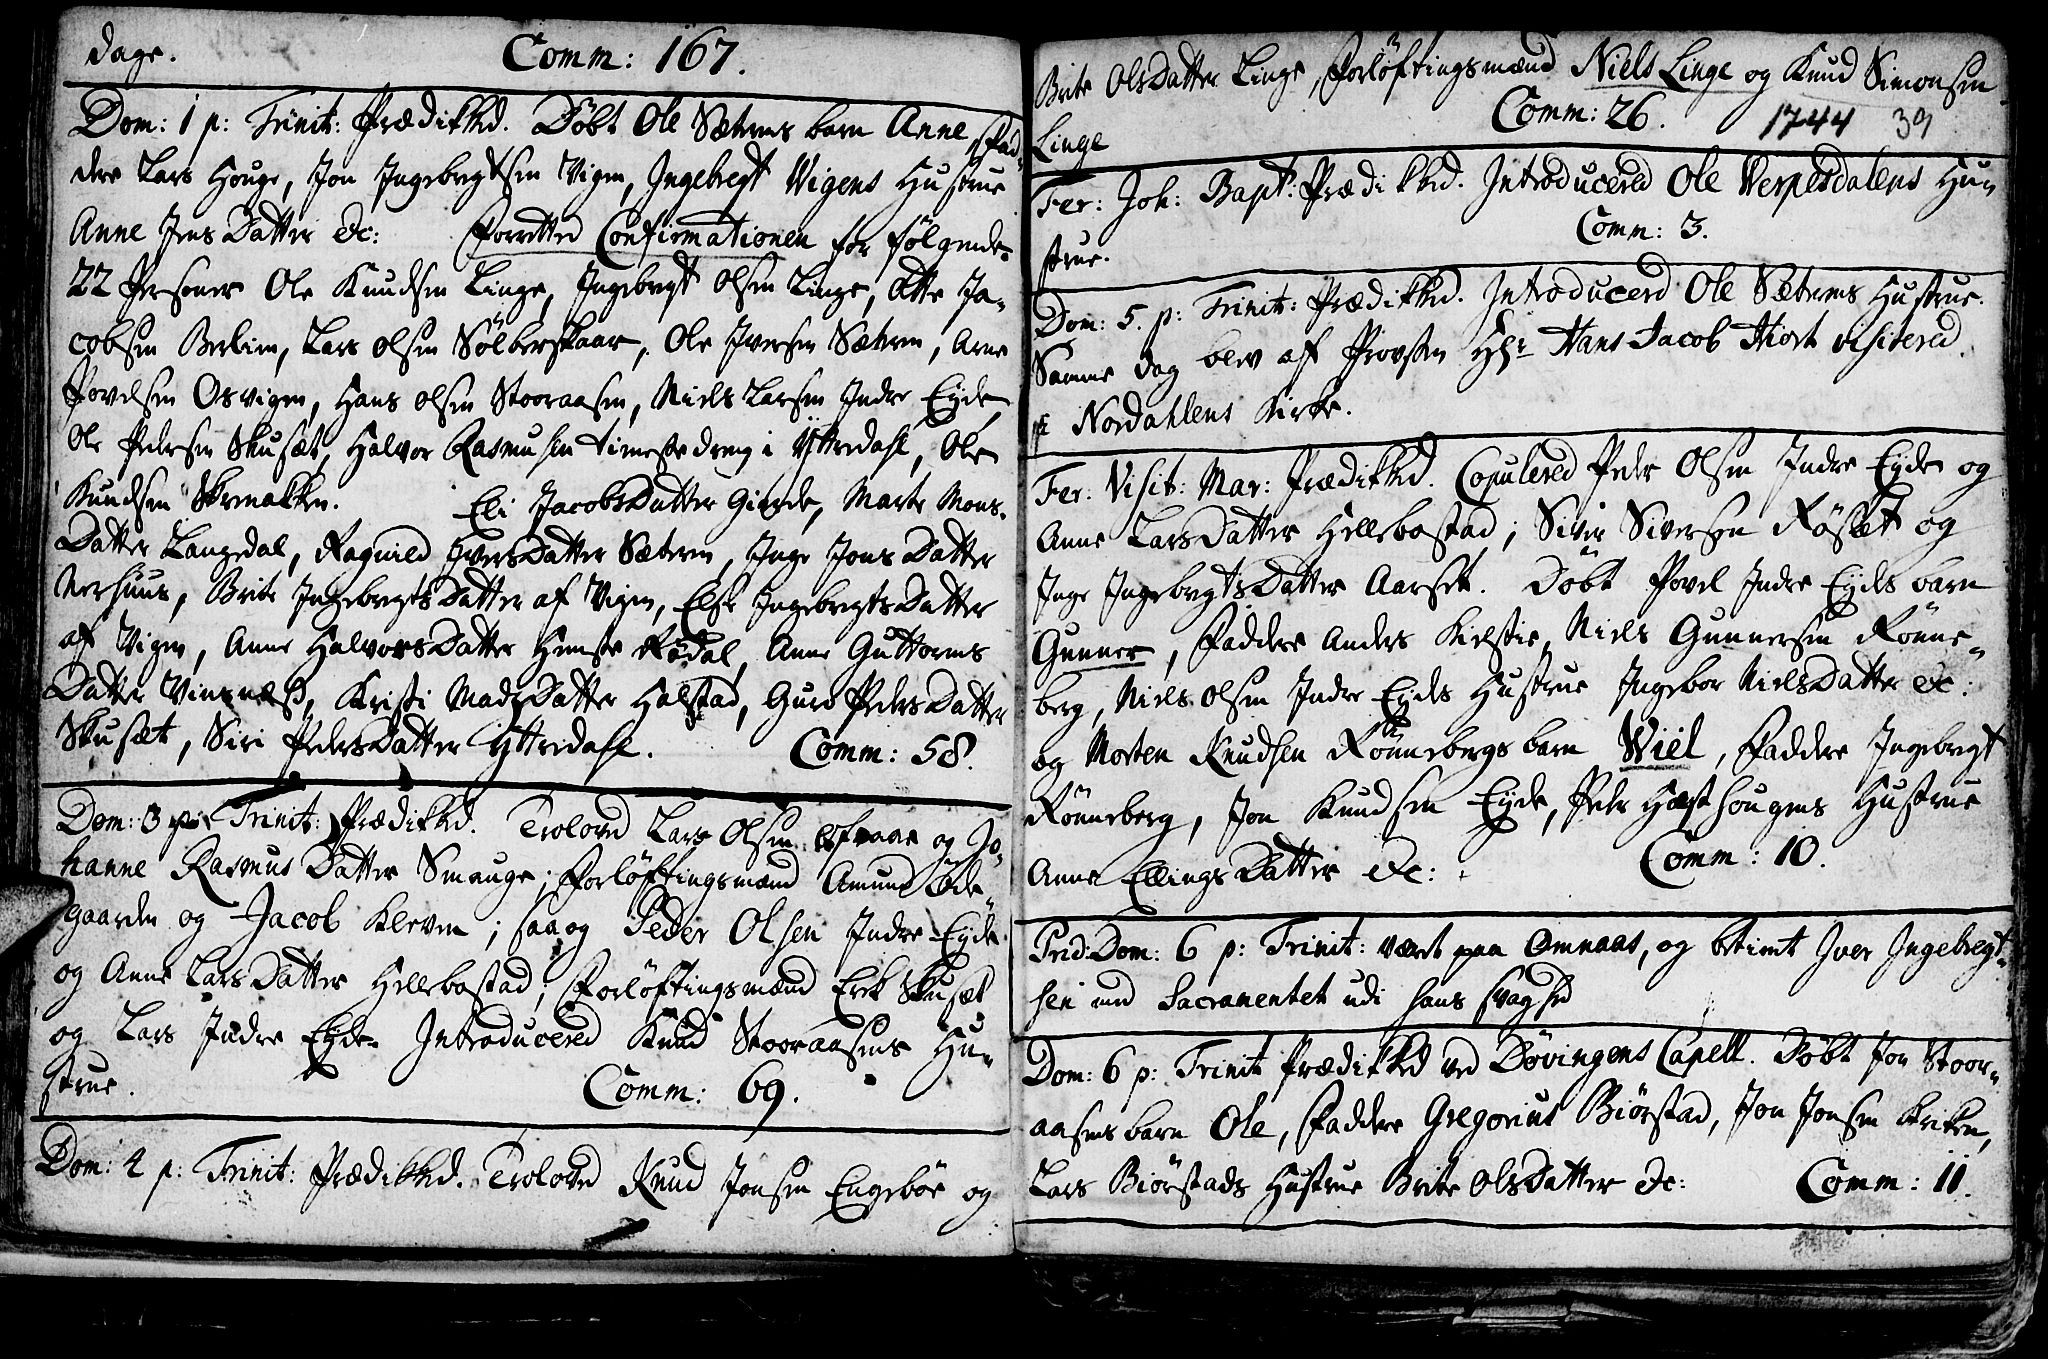 dage. Comm: 167.
Dom: 1 p: Trinit: Prædikked. Döbt Ole Sætrens barn Anne, Fad-
dere Lars Houge, Jon Ingebregtsen Vigen, Ingebregt Wigens Hustrue
Anne JensDatter &c: Forrettet Confirmationen for fölgende
22 Personer Ole Knudsen Linge, Ingebregt Olsen Linge, Otte Ja-
cobsen Berlien, Lars Olsen Sölberskaar, Ole Iversen Sætren, Arne
Povelsen Osvigen, Hans Olsen Stooraasen, Niels Larsen Indre Eyde,
Ole Pedersen Skusæt, Halvor Rasmusen tienestedreng i Yttredahl, Ole
Knudsen Skrenakken. Eli JacobsDatter Gierde, Marte Mons-
Datter Langedal, Ragnild IversDatter Sætren, Inge Jons Datter
Nerhuus, Brite IngebregtsDatter af Vigen, Else IngebregtsDatter
af Vigen, Anne HalvorsDatter Rödal, Anne Guttorms
Datter Vinnæs, Kristi MadsDatter Halstad, Guro PedersDatter
Skusæt, Siri PedersDatter Yttredahl. Comm: 58.
Dom: 3 p: Trinit: Prædikked. Trolovede Lars Olsen og Jo-
hanne Rasmus Datter Smauge; Forlöftingsmænd Amund Öde-
gaarden og Jacob Kleven; saa og Peder Olsen Indre Eyde
og Anne LarsDatter Hellebostad; Forlöftingsmænd Erik Skusæt
og Lars Indre Eyde. Introducered Knud Stooraasens Hu-
strue. Comm: 69.
Dom: 4 p: Trinit: Prædikked. Trolovede Knud Jonsen Engeböe og
Brite OlsDatter Linge, Forlöftingsmænd Niels Linge og Knud Simonsen
Linge Comm: 26. 1744 39
Fer: Joh: Bapt: Prædikked. Introducered Ole Verpesdalens Hu-
strue. Comm: 3.
Dom: 5. p: Trinit: Prædikked. Introducerd Ole Sætrens Hustrue.
Samme dag blev af Provsten Hr: Hans Jacob Hiort visitered
i Nordahlens Kirke.
Fer: Visit: Mar: Prædikked. Copulered Peder Olsen Indre Eyde og
Anne LarsDatter Hellebostad; Siver Siversen Rösæt og
Inge IngebregtsDatter Aarset. Döbt Povel Indre Eydes barn
Gunner, Faddere Anders Kilstie, Niels Gunnersen Rönne-
berg, Niels Olsen Indre Eydes Hustrue Ingebor NielsDatter &c:
og Morten Knudsen Rönnebergs barn Wiel, Faddere Ingebregt
Rönneberg, Jon Knudsen Eyde, Peder Hæsthougens Hustrue
Anne EllingsDatter &c: Comm: 10.
Prid: Dom: 6 p: Trinit: været paa Omnaas, og betient Iver Ingebregt-
sen med Sacramentet udi hans svaghed
Dom: 6 p: Trinit Prædikked ved Dövingens Capell. Döbt Jon Stoor-
aasens barn Ole, Faddere Gregorius Biörstad, Jon Jonsen Kriken,
Lars Biörstads Hustrue Brite OlsDatter &c: Comm: 11.